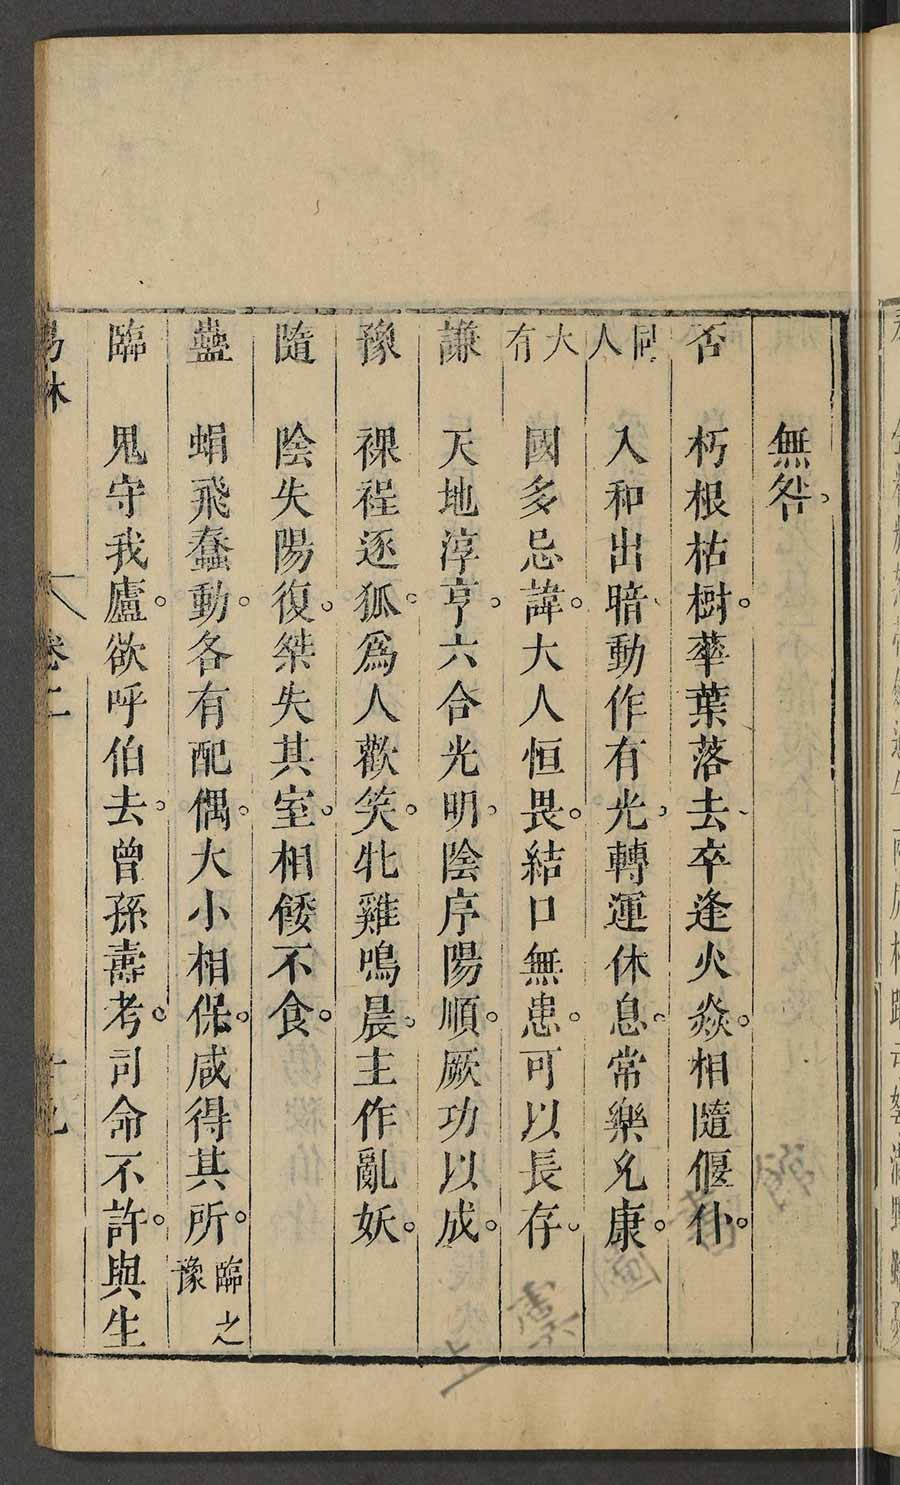 無咎。
否 朽根枯樹。華葉落去、卒逢火焱。相隨偃仆。
同人 入和出暗、動作有光、轉運休息。常樂允康。
大有 國多忌諱。大人恒畏。結口無患。可以長存。
謙 天地淳亨。六合光明、陰序陽順。厥功以成。
豫 裸裎逐狐。爲人歡笑。牝雞鳴晨。主作亂妖。
隨 陰失陽復。桀失其室。相餧不食。
蠱 蜎飛蠢動。各有配偶。大小相保。咸得其所。臨之豫
臨 鬼守我廬。欲呼伯去。曾孫壽考。司命不許。與生
易林 卷二 十九